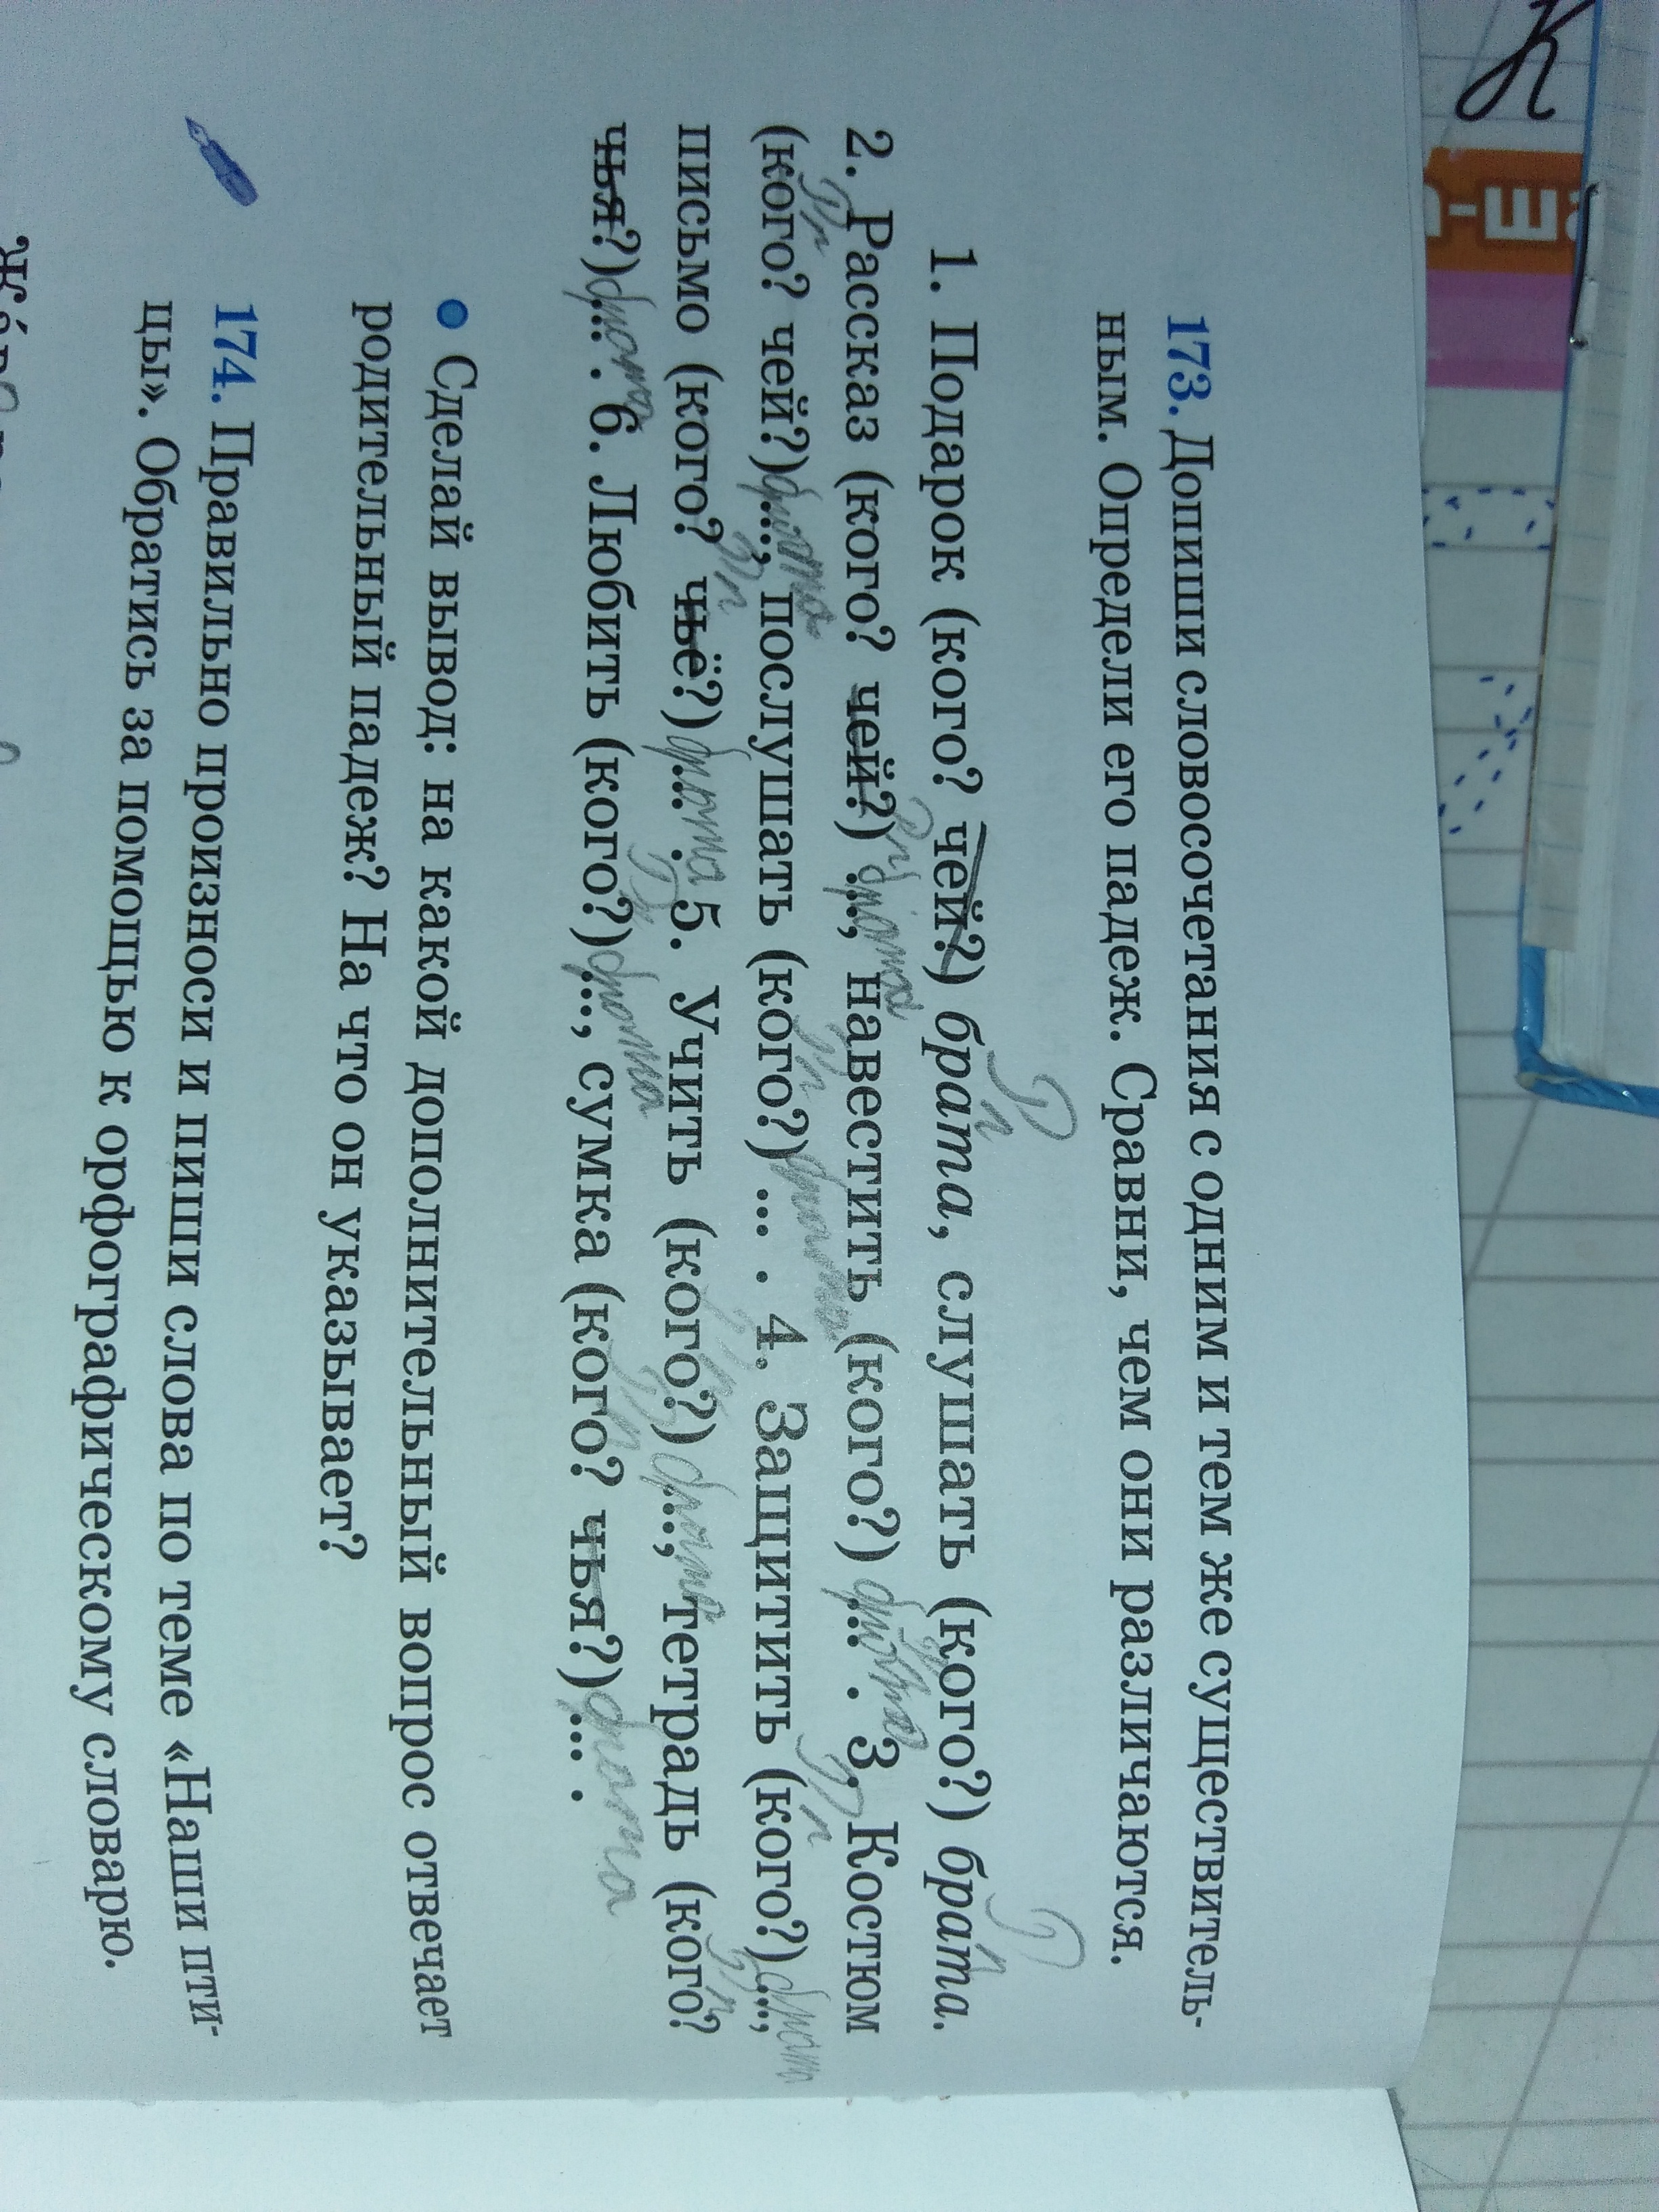 К
Е
173. Допиши словосочетания с одним и тем же существитель-
ным. Определи его падеж. Сравни, чем они различаются.
Рп Рп
1. Подарок (кого? чей?) брата, слушать (кого?) брата.
2. Рассказ (кого? чей?) брата ..., навестить (кого?) брата ... . 3. Костюм
(кого? чей?) брата ..., послушать (кого?) брата ... . 4. Защитить (кого?) брата ...,
письмо (кого? чьё?) брата ... . 5. Учить (кого?) брата ..., тетрадь (кого?
чья?) брата ... . 6. Любить (кого?) брата ..., сумка (кого? чья?) брата ... .
• Сделай вывод: на какой дополнительный вопрос отвечает
родительный падеж? На что он указывает?
174. Правильно произноси и пиши слова по теме «Наши пти-
цы». Обратись за помощью к орфографическому словарю.